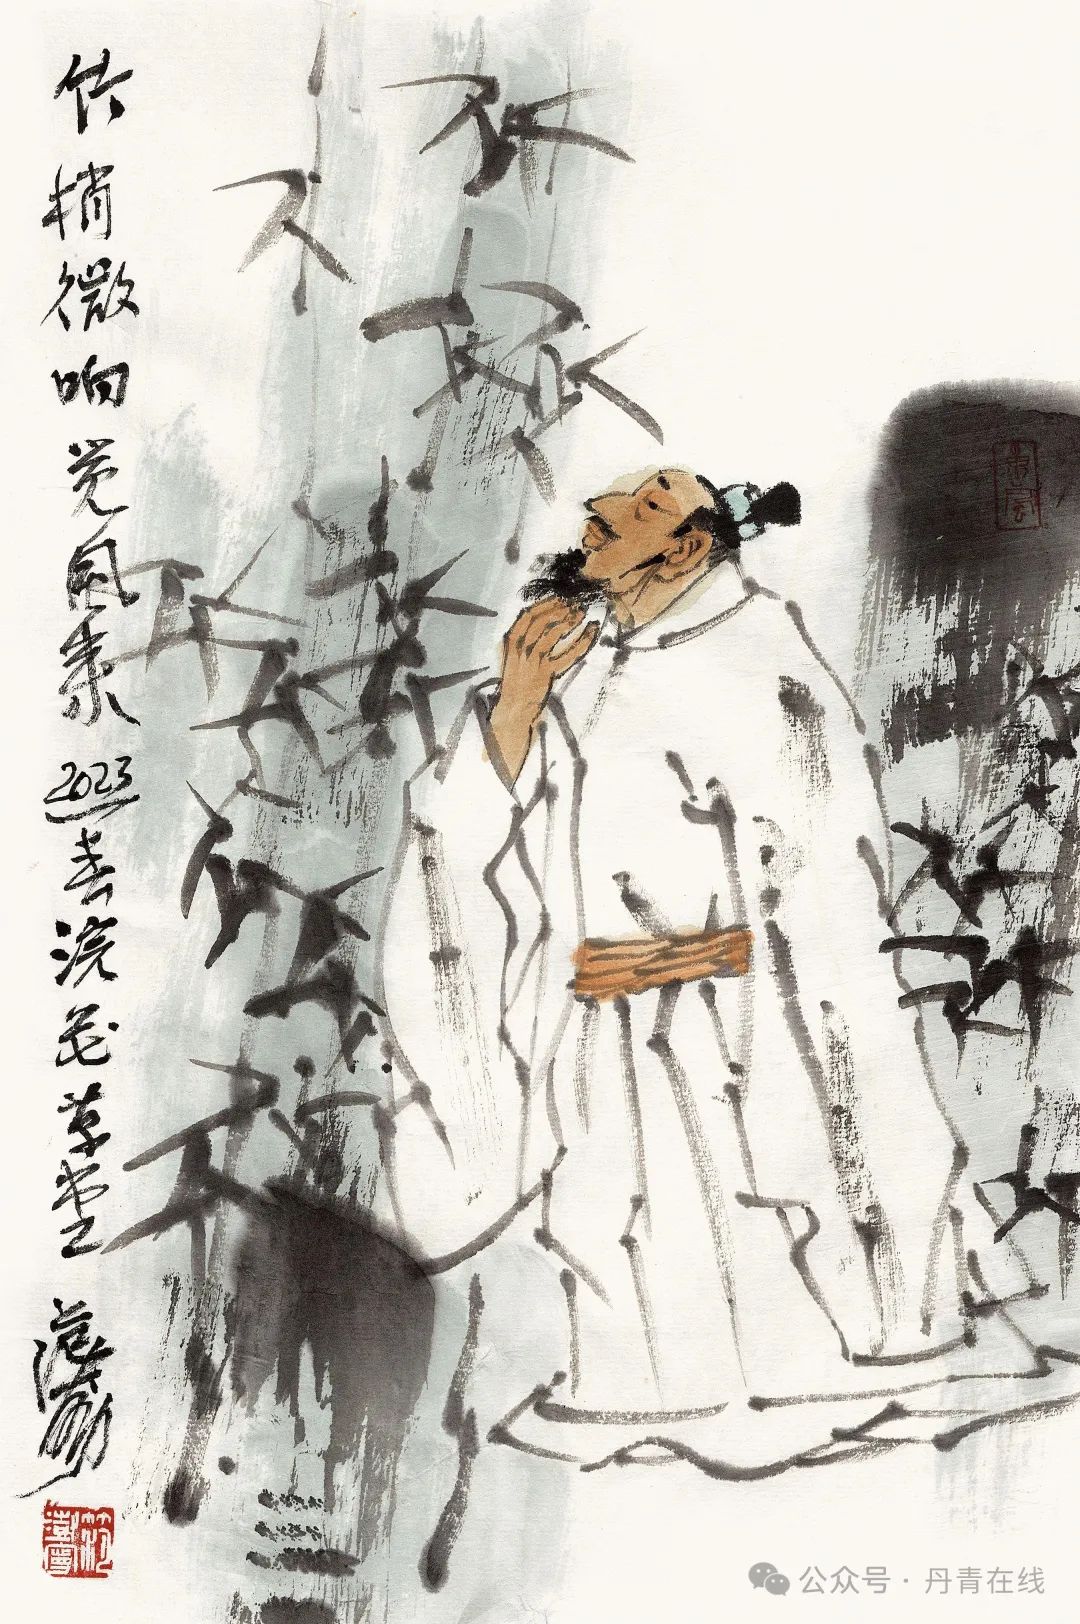 竹梢微响觉风来 2023春浣花草堂
公众号 · 丹青在线